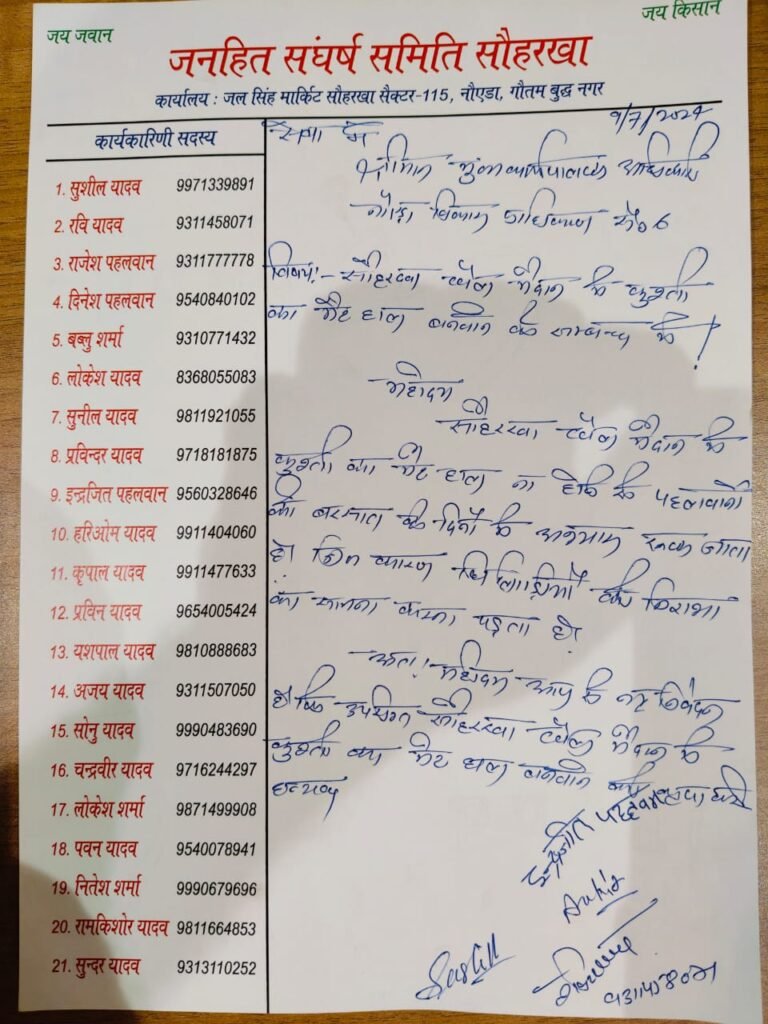 जय जवान
जय किसान
जनहित संघर्ष समिति सौहरखा
कार्यालय : जल सिंह मार्किट सौहरखा सैक्टर-115, नौएडा, गौतम बुद्ध नगर
कार्यकारिणी सदस्य
1. सुशील यादव 9971339891
2. रवि यादव 9311458071
3. राजेश पहलवान 9311777778
4. दिनेश पहलवान 9540840102
5. बब्लु शर्मा 9310771432
6. लोकेश यादव 8368055083
7. सुनील यादव 9811921055
8. प्रविन्दर यादव 9718181875
9. इन्द्रजित पहलवान 9560328646
10. हरिओम यादव 9911404060
11. कृपाल यादव 9911477633
12. प्रविन यादव 9654005424
13. यशपाल यादव 9810888683
14. अजय यादव 9311507050
15. सोनु यादव 9990483690
16. चन्द्रवीर यादव 9716244297
17. लोकेश शर्मा 9871499908
18. पवन यादव 9540078941
19. नितेश शर्मा 9990679696
20. रामकिशोर यादव 9811664853
21. सुन्दर यादव 9313110252
9/7/2024
सेवा में
श्रीमान मुख्य कार्यपालक अधिकारी
नौएडा विकास प्राधिकरण सै० 6
विषय:- सौहरखा खेल मैदान में कुश्ती
का मैट हाल बनवाने के सम्बन्ध में!
महोदय
सौहरखा खेल मैदान में
कुश्ती का मैट हाल ना होने से पहलवानों
का बरसात के दिनों में अभ्यास रुक जाता
है। जिस कारण खिलाड़ियों को निराशा
का सामना करना पड़ता है।
अतः महोदय आप से नम्र निवेदन
है कि उपरोक्त सौहरखा खेल मैदान में
कुश्ती का मैट हाल बनवाने की कृपा करें
धन्यवाद
इन्द्रजीत पहलवान